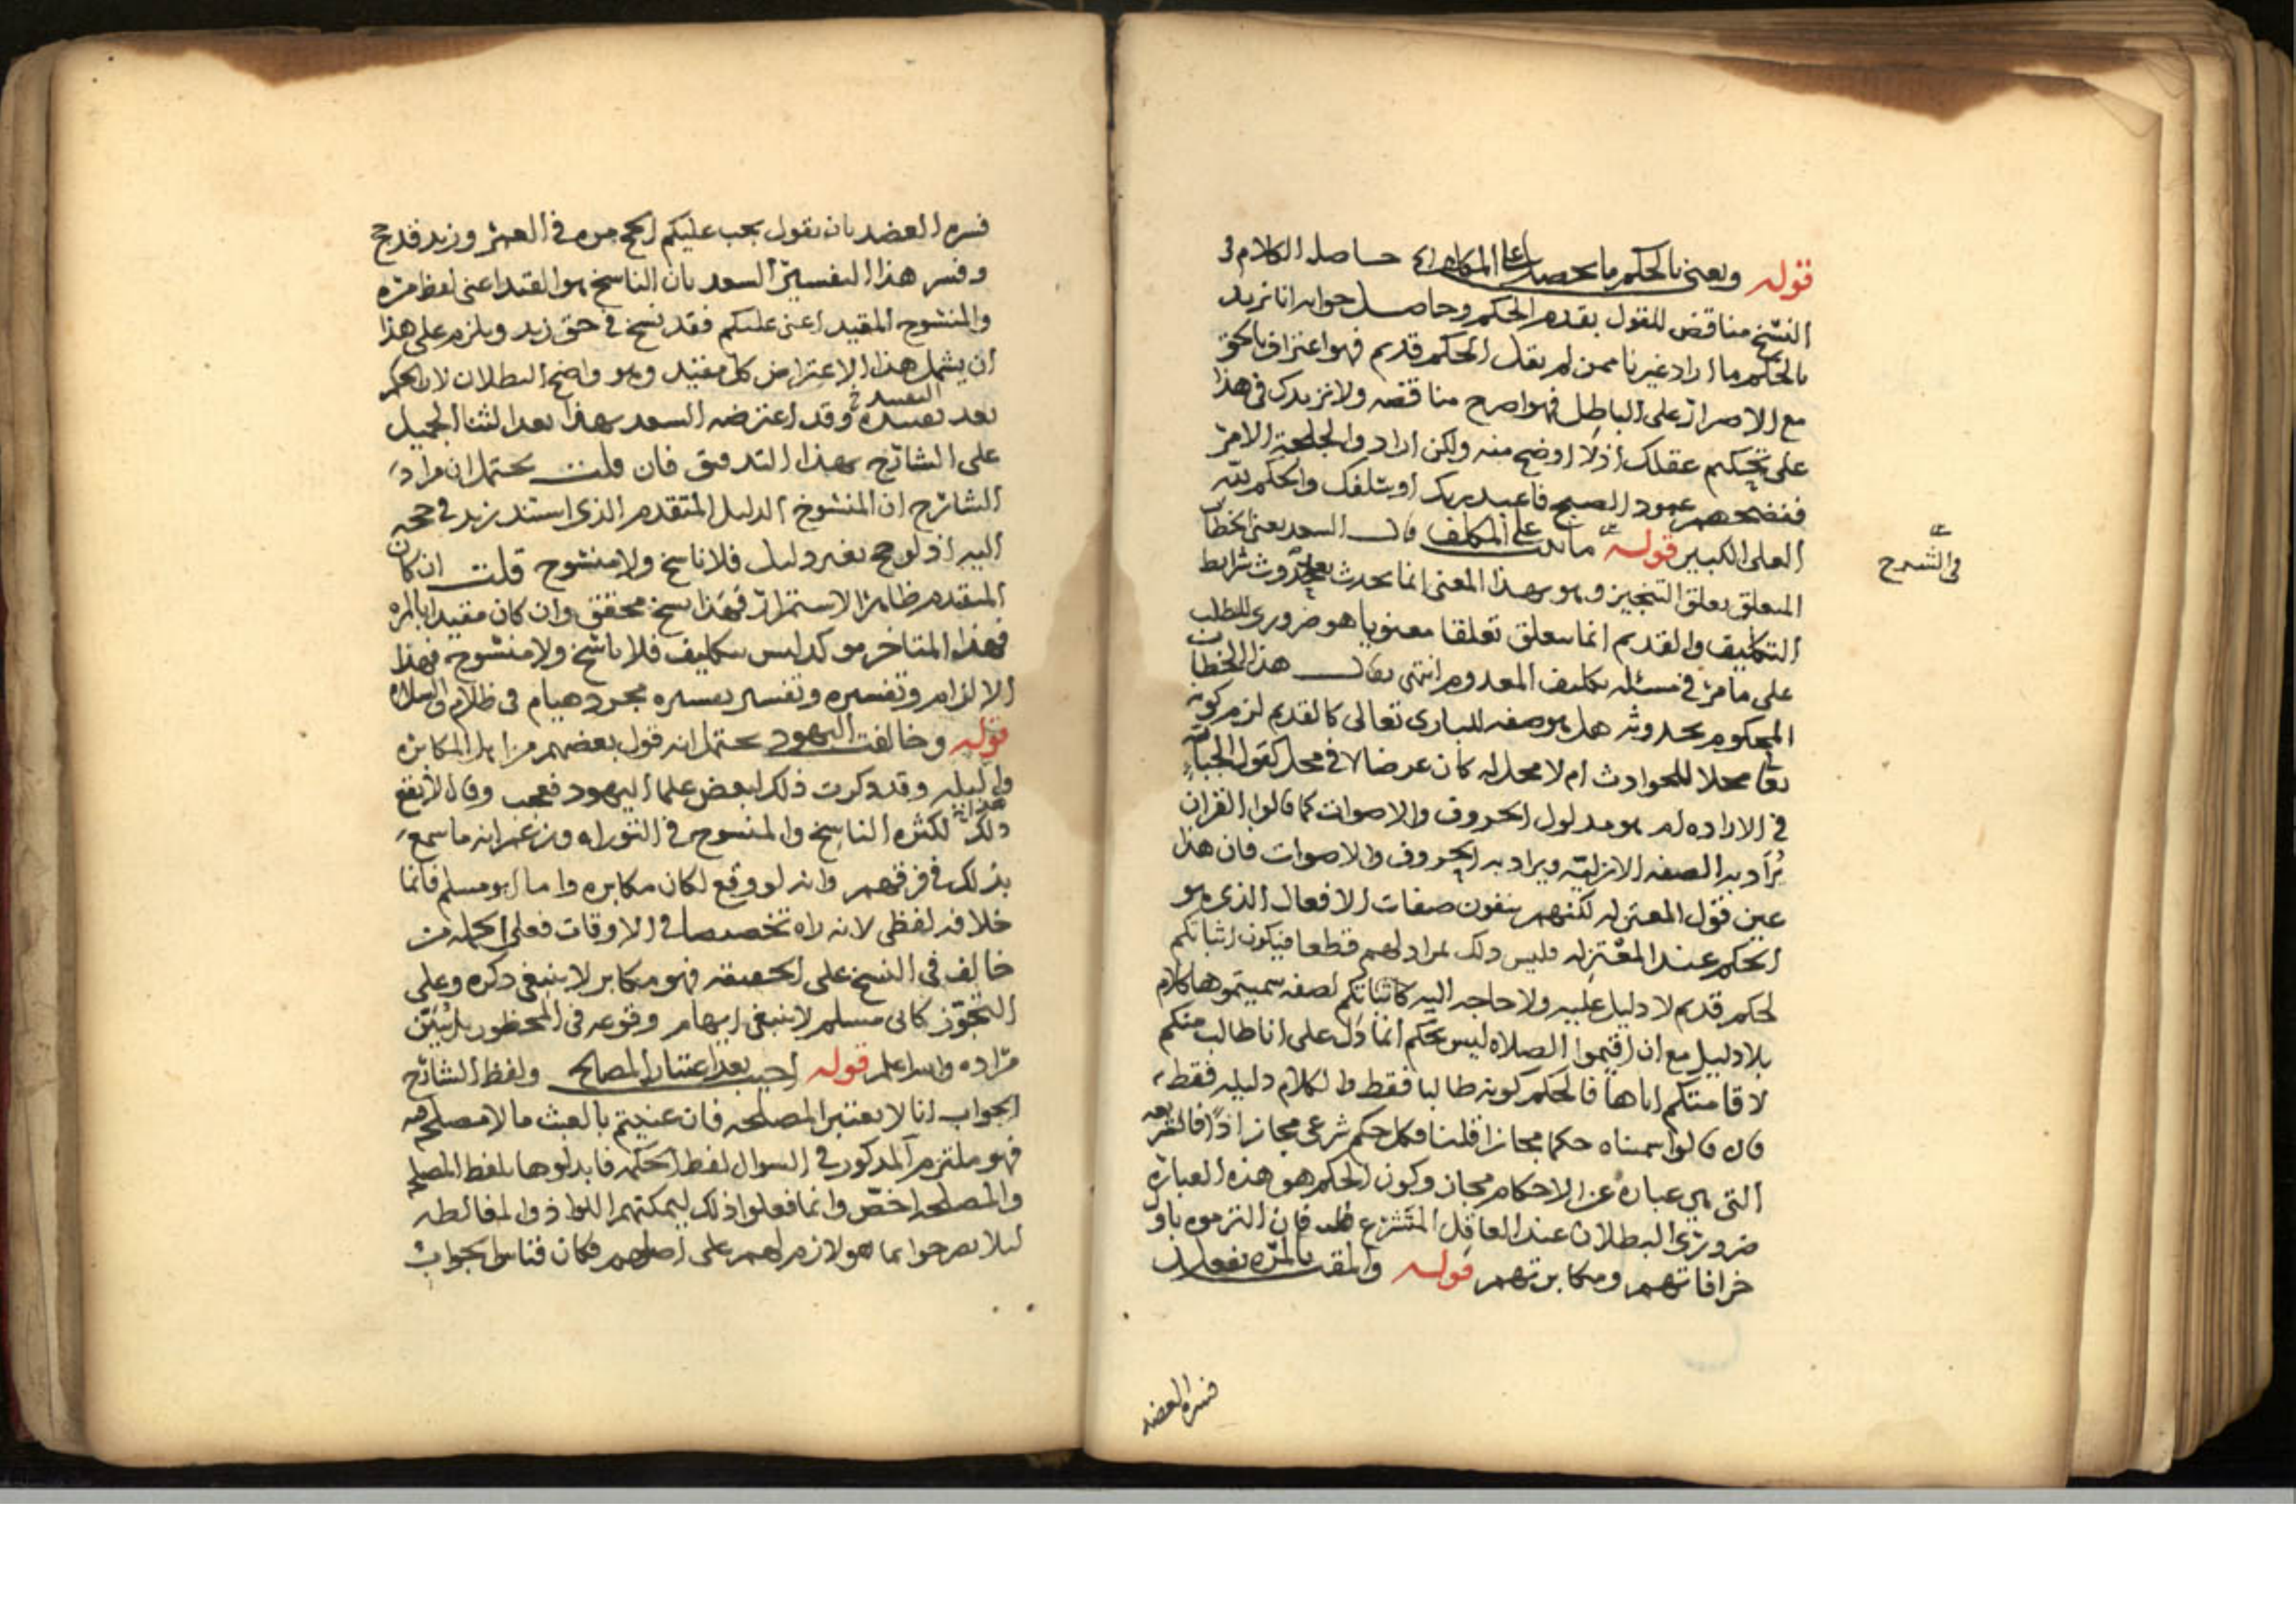 قوله ونعني بالحكم ما يحصل على المكلف الخ حاصل الكلام في
النسخ مناقض للقول بقدم الحكم وحاصل جوابه انا نريد
بالحكم ما اراد غيرنا ممن لم يقل الحكم قديم فهو اعتراف بالحق
مع الاصرار على الباطل فهو اصرح مناقضه ولا نزيدك في هذا
على تحكيم عقلك اذ لا اوضح منه ولكن ارادوا لجلجة الامر
ففضحهم عمود الصبح فاعبد ربك او سلفك والحكم لله
العلي الكبير قوله ما ثبت على المكلف قال السعد يعني الخطاب
في الشرح
المتعلق تعلق التنجيز وهو بهذا المعنى انما يحدث بحدوث شرايط
التكليف والقديم انما يتعلق تعلقا معنويا هو ضروري للطلب
على ما مر في مسئله تكليف المعدوم انتهى يقال هذا الخطاب
المحكوم بحدوثه هل هو صفه للباري تعالى كالقديم لزم كونه
تعا محلا للحوادث ام لا محل له كان عرضا لا في محل كقول الجبائيه
في الاراده ام هو مدلول الحروف والاصوات كما قالوا القران
يراد به الصفه الازلية ويراد به الحروف والاصوات فان هذا
عين قول المعتزله لكنهم ينفون صفات الافعال الذي هو
الحكم عند المعتزله فليس ذلك بمراد لهم قطعا فيكون اثباتكم
لحكم قديم لا دليل عليه ولا حاجه اليه كاثباتكم لصفه سميتموها كلام
بلا دليل مع ان اقيموا الصلاه ليس بحكم انما دل على انا طالب منكم
لاقامتكم اياها فالحكم كونه طالبا فقط والكلام دليله فقط
فان قالوا سميناه حكما مجازا قلنا فكل حكم شرعي مجاز اذا فالشريعه
التي هي عباره عن الاحكام مجاز وكون الحكم هو هذه العبارة
ضروري البطلان عند العاقل المتشرع فان التزموه باؤ
خرافاتهم ومكابرتهم قوله والمقيد بالمرة يفعل
فسره العضد
فسره العضد بان يقول يجب عليكم الحج مره في العمر وزيد قد حج
وفسر هذا التفسير السعد بان الناسخ هو القيد اعني لفظ مرة
والمنسوخ المقيد اعني عليكم فقد نسخ في حق زيد ويلزم على هذا
ان يشمل هذا الاعتراض كل مقيد وهو واضح البطلان لان الحكم
بعد تقييده وقد اعترضه السعد بهذا بعد الثنا الجميل
على الشارح بهذا التدقيق فان قلت يحتمل ان مراد
الشارح ان المنسوخ الدليل المتقدم الذي استند زيد في حجه
اليه اذ لو حج بغير دليل فلا ناسخ ولا منسوخ قلت ان كان
المتقدم ظاهر الاستمرار فهذا نسخ محقق وان كان مقيدا بالمره
فهذا المتاخر موكد ليس بتكليف فلا ناسخ ولا منسوخ فهذا
الالزام وتفسيره وتفسير تفسيره مجرد هيام في ظلام والسلام
قوله وخالفت اليهود يحتمل انه قول بعضهم من اهل المكابره
وقد ذكرت ذلك لبعض علما اليهود فعجب وقال لا يقع
ذلك لكثره الناسخ والمنسوخ في التوراه وزعم انه ما سمع
بذلك في فرقهم وانه لو وقع لكان مكابره واما ابو مسلم فانما
خلافه لفظي لانه راه تخصيصا في الاوقات فعلى الجمله من
خالف في النسخ على الحقيقه فهو مكابر لا ينبغي ذكره وعلى
التجوز كابي مسلم لا ينبغي ايهام وقوعه في المحظور بل يبين
مراده والله اعلم قوله اجيب بعد اعتبار المصالح ولفظ الشارح
الجواب انا لا نعتبر المصلحه فان عنيتم بالعبث ما لا مصلحه فيه
فهو ملتزم المذكور في السوال لفظ الحكمه فابدلوها بلفظ المصلحه
والمصلحه اخص وانما فعلوا ذلك ليمكنهم اللواذ والمغالطه
ليلا يصرحوا بما هو لازم لهم على اصلهم فكان قياس الجواب